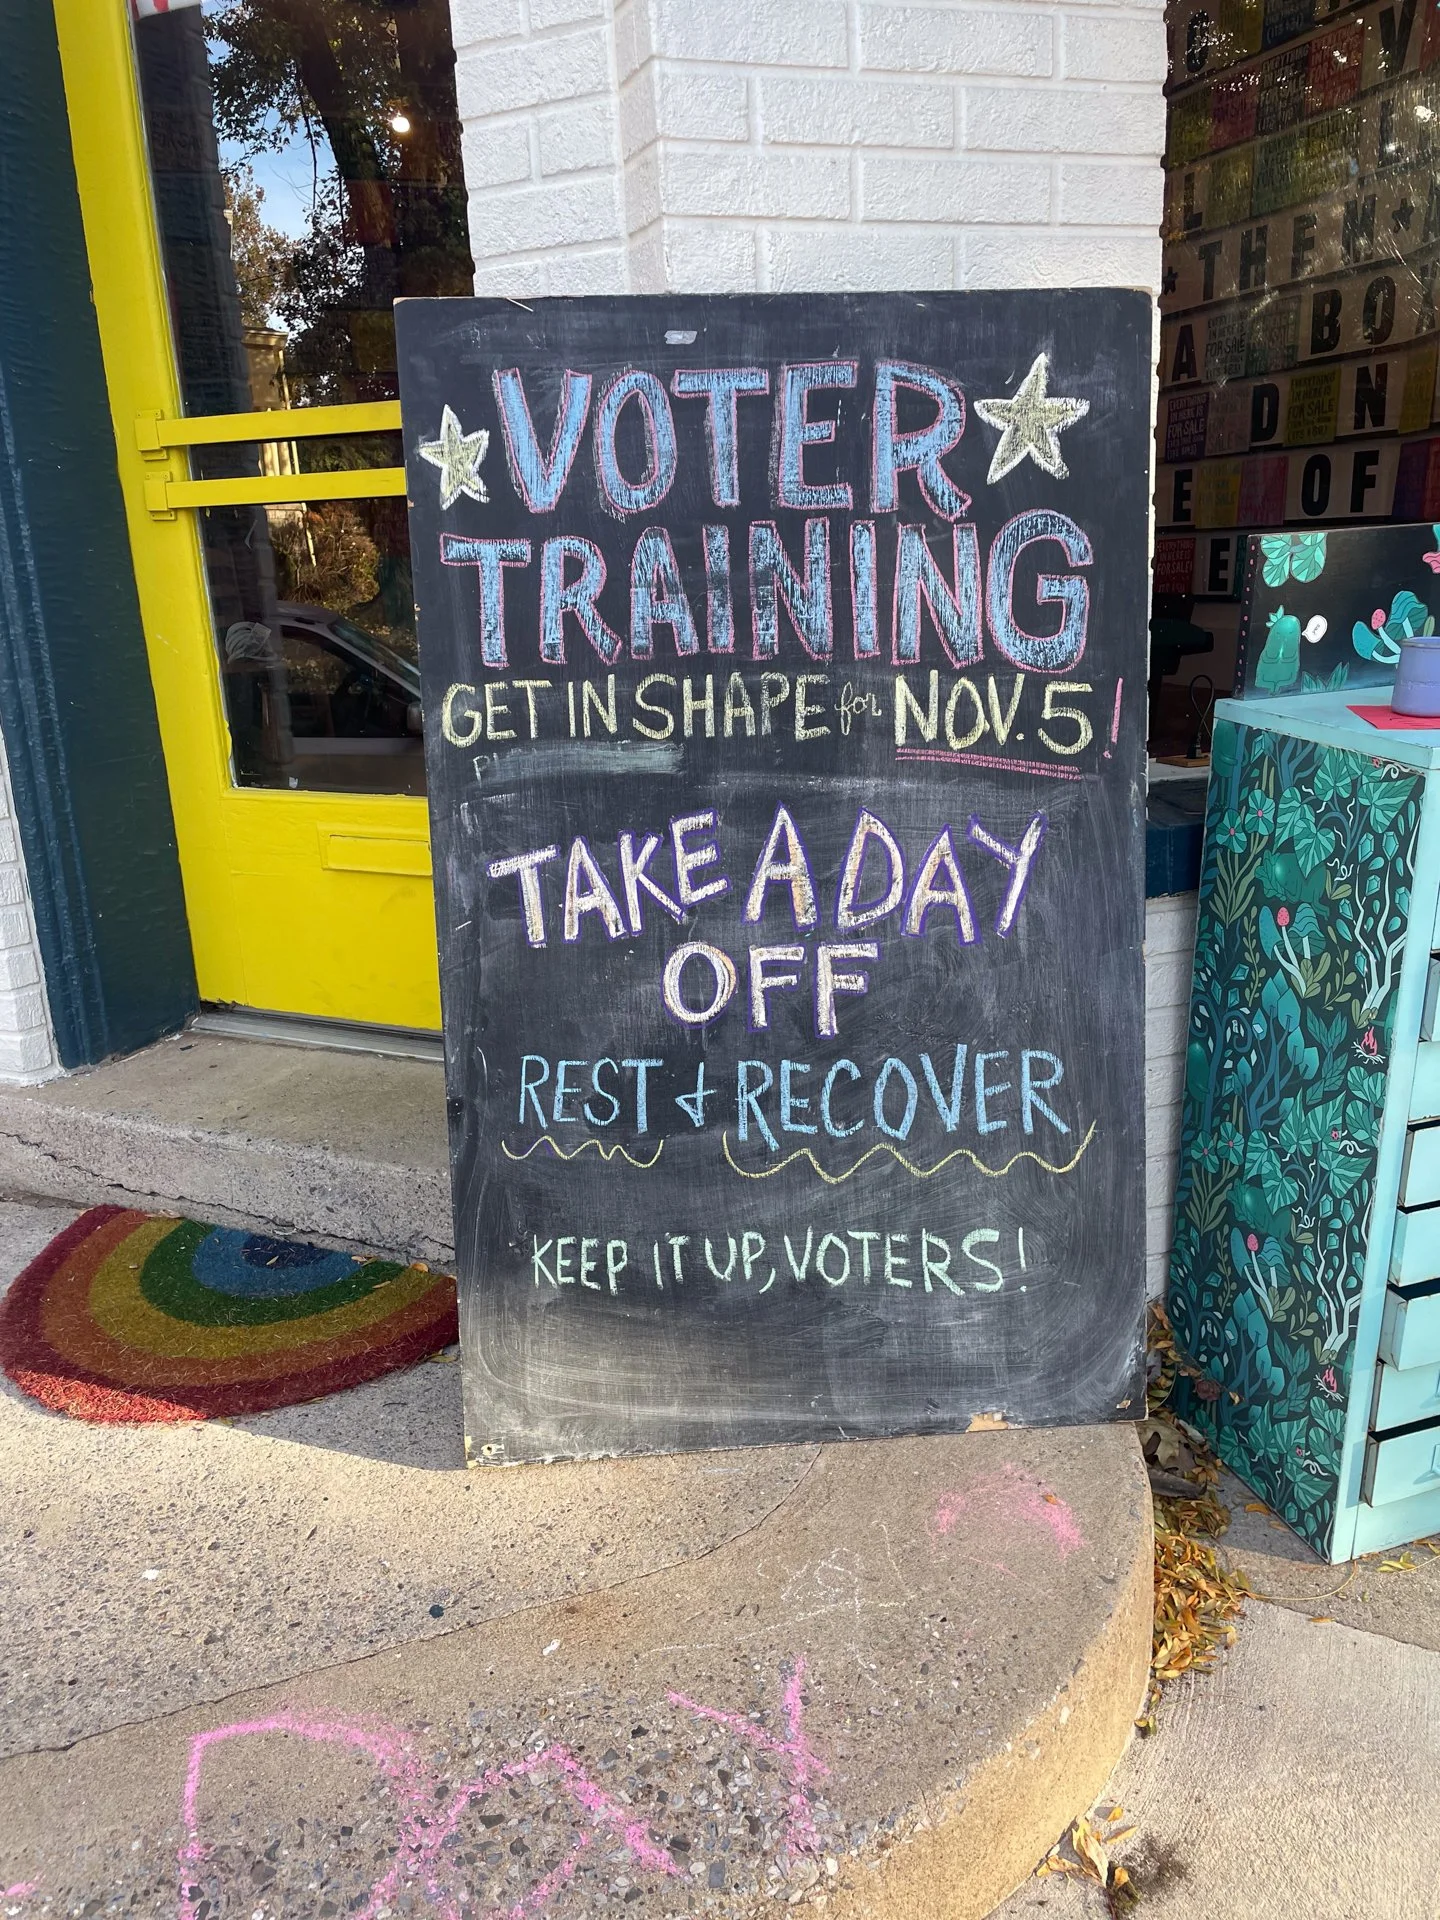 VOTER
TRAINING
GET IN SHAPE for NOV. 5!
TAKE A DAY
OFF
REST & RECOVER
KEEP IT UP, VOTERS!
THEM
A BOX
D N
E OF
EVERYTHING
IN HERE IS
FOR SALE
DAY